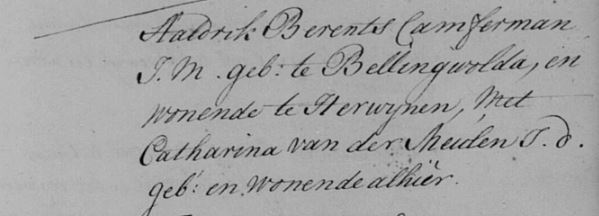 Haldrik Berents Camferman
J.M. geb: te Bellingwolda, en
wonende te Herwynen, Met
Catharina van der Meulen J.d.
geb: en wonende alhier.